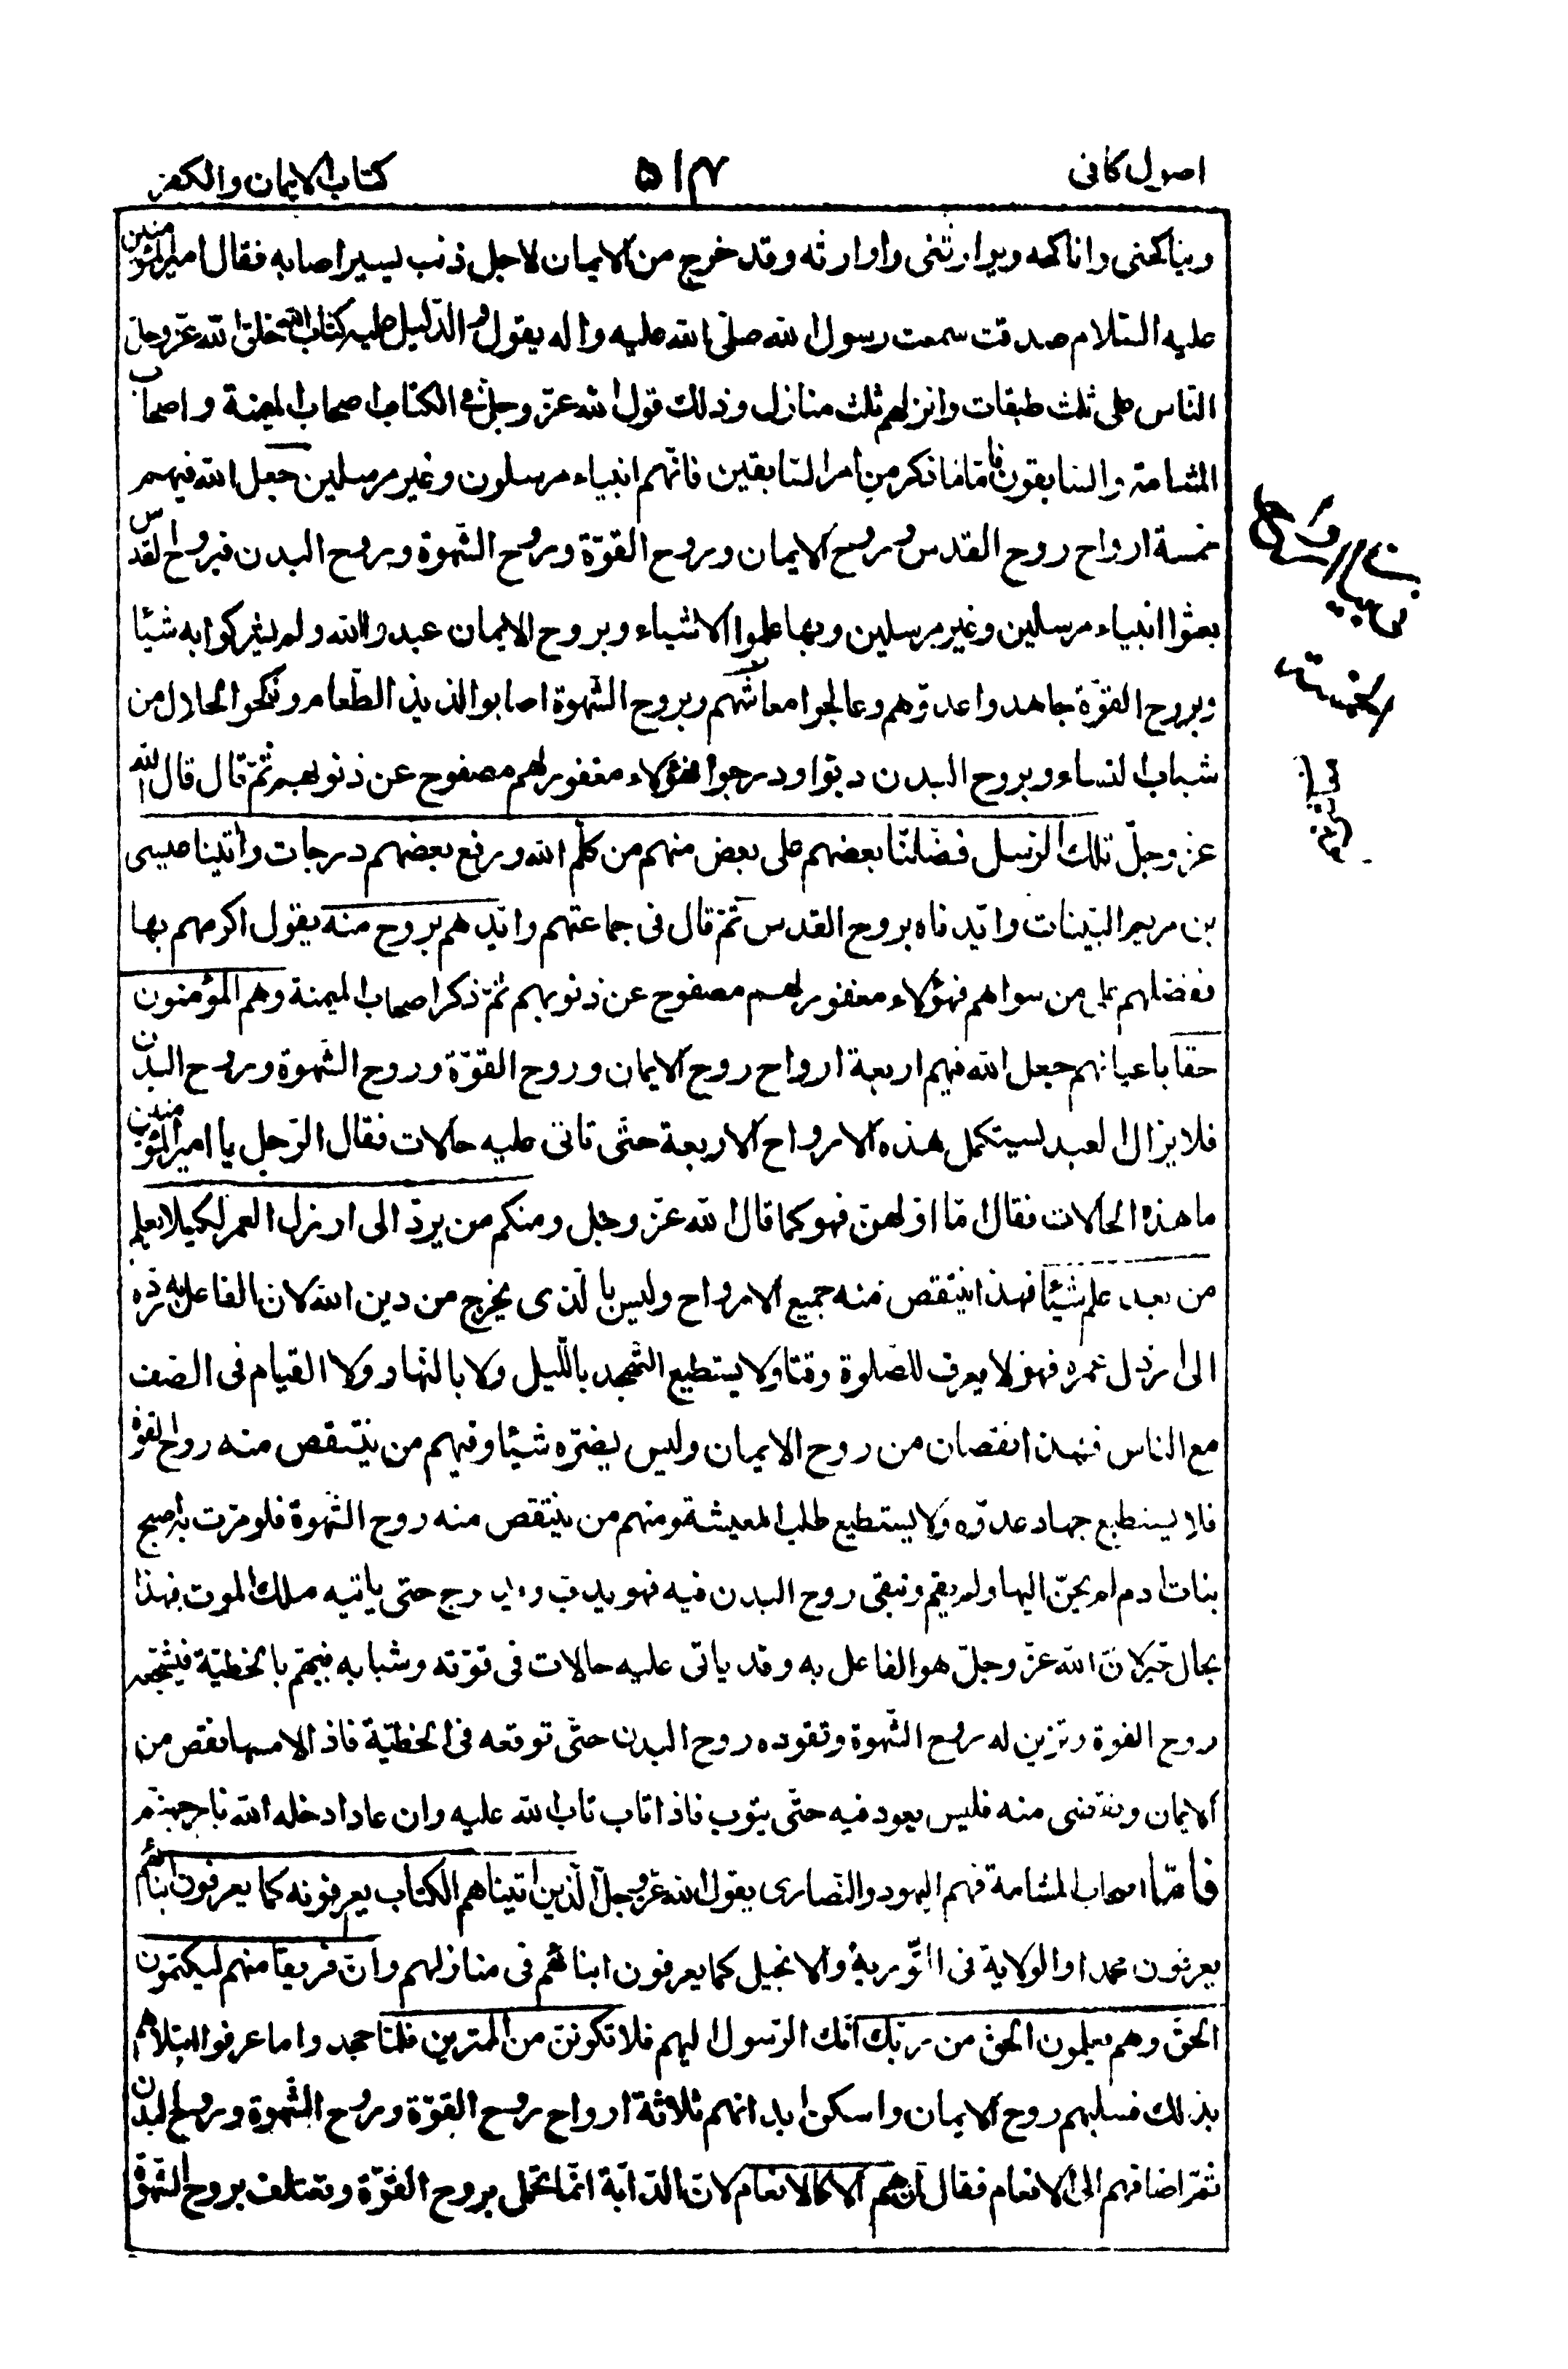 اصول کافی
۵۱۷
كتاب الايمان والكفر
ويناكحنى واناكحه ويوارثنى واوارثه وقد خرج من الايمان لاجل ذنب يسير اصابه فقال امير المؤمنين
عليه السّلام صدقت سمعت رسول الله صلى الله عليه واله يقول والدّليل عليه كتاب الله خلق الله عزّ وجلّ
النّاس على ثلث طبقات وانزلهم ثلث منازل وذلك قول الله عزّ وجلّ فى الكتاب اصحاب الميمنة واصحاب
المشامة والسابقون فامّا ما ذكر من امر السّابقين فانّهم انبياء مرسلون وغير مرسلين جعل الله فيهم
خمسة ارواح روح القدس وروح الايمان وروح القوّة وروح الشّهوة وروح البدن فبروح القدس
بعثوا انبياء مرسلين وغير مرسلين وبها علموا الاشياء وبروح الايمان عبدوا الله ولم يشركوا به شيئا
وبروح القوّة جاهدوا عدوّهم وعالجوا معاشهم وبروح الشّهوة اصابوا لذيذ الطّعام ونكحوا الحلال من
شباب النساء وبروح البدن دبّوا ودرجوا فهؤلاء مغفور لهم مصفوح عن ذنوبهم ثمّ قال قال الله
عزّ وجلّ تلك الرّسل فضّلنا بعضهم على بعض منهم من كلّم الله ورفع بعضهم درجات واتينا عيسى
بن مريم البيّنات وايّدناه بروح القدس ثمّ قال فى جماعتهم وايّدهم بروح منه يقول اكرمهم بها
ففضلهم على من سواهم فهؤلاء مغفور لهم مصفوح عن ذنوبهم ثمّ ذكر اصحاب الميمنة وهم المؤمنون
حقا باعيانهم جعل الله فيهم اربعة ارواح روح الايمان وروح القوّة وروح الشّهوة وروح البدن
فلا يزال العبد يستكمل هذه الارواح الاربعة حتّى تاتى عليه حالات فقال الرّجل يا امير المؤمنين
ما هذه الحالات فقال امّا اولهنّ فهو كما قال الله عزّ وجل ومنكم من يردّ الى ارذل العمر لكيلا يعلم
من بعد علم شيئا فهذا ينتقص منه جميع الارواح وليس بالّذى يخرج من دين الله لان الفاعل به ردّه
الى ارذل عمره فهو لا يعرف للصّلوة وقتا ولا يستطيع التّهجد باللّيل ولا بالنّهار ولا القيام فى الصّف
مع الناس فهذا نقصان من روح الايمان وليس يضرّه شيئا وفيهم من ينتقص منه روح القوة
فلا يستطيع جهاد عدوّه ولا يستطيع طلب المعيشة ومنهم من ينتقص منه روح الشّهوة فلو مرّت به اصبح
بنات ادم لم يحنّ اليها ولم يقم وتبقى روح البدن فيه فهو يدبّ ويدرج حتى ياتيه ملك الموت فهذا
بحال خير لانّ الله عزّ وجلّ هو الفاعل به وقد ياتى عليه حالات فى قوّته وشبابه فيهمّ بالخطيّة فيشجّعه
روح القوة وتزين له روح الشّهوة وتقوده روح البدن حتّى توقعه فى الخطيّة فاذا لامسها نقص من
الايمان وتفصّى منه فليس يعود فيه حتّى يتوب فاذا تاب تاب الله عليه وان عاد ادخله الله نار جهنّم
فامّا اصحاب المشامة فهم اليهود والنّصارى يقول الله عزّ وجلّ الّذين اتيناهم الكتاب يعرفونه كما يعرفون ابنائهم
يعرفون محمدا والولاية فى التّورية والانجيل كما يعرفون ابنائهم فى منازلهم وانّ فريقا منهم ليكتمون
الحقّ وهم يعلمون الحقّ من ربّك انّك الرّسول اليهم فلا تكوننّ من الممترين فلمّا جحدوا ما عرفوا ابتلاهم
بذلك فسلبهم روح الايمان واسكن ابدانهم ثلاثة ارواح روح القوّة وروح الشّهوة وروح البدن
ثمّ اضافهم الى الانعام فقال ان هم الا كالانعام لانّ الدّابّة انّما تحمل بروح القوّة وتعتلف بروح الشّهوة